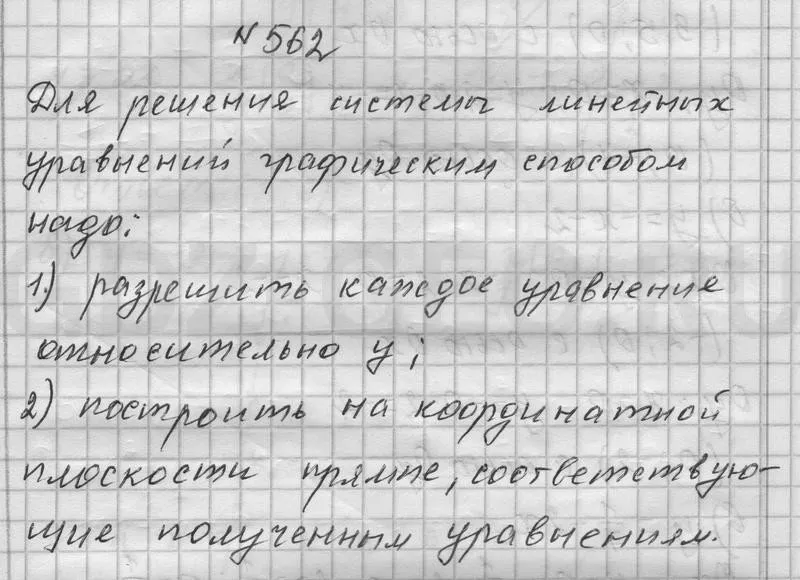 №562
Для решения системы линейных
уравнений графическим способом
надо:
1) разрешить каждое уравнение
относительно y;
2) построить на координатной
плоскости прямые, соответствую-
щие полученным уравнениям.